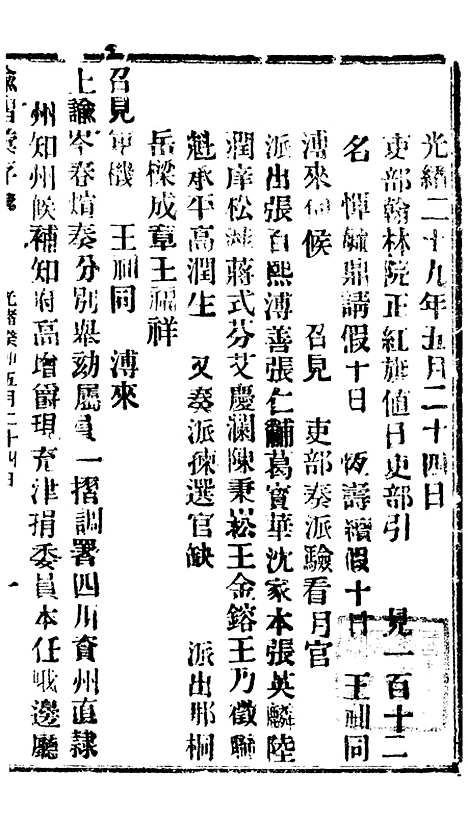 光緒二十九年五月二十四日
吏部翰林院正紅旗值日吏部引　見一百十二
名　惲毓鼎請假十日　恆壽續假十日　王祠同
溥來　候　召見　吏部奏派驗看月官
派出張百熙溥善張仁黼葛寶華沈家本張英麟陸
潤庠松　蔣式芬艾慶瀾陳秉崧王金鎔王乃徵
魁承平高潤生　又奏派揀選官缺　派出那桐
岳樑成章王福祥
召見軍機　王祠同　溥來
上諭岑春煊奏分別舉劾屬員一摺調署四川資州直隸
州知州候補知府高增爵現充津捐委員本任峨邊廳
諭摺彙存　光緒癸卯五月二十四日　一